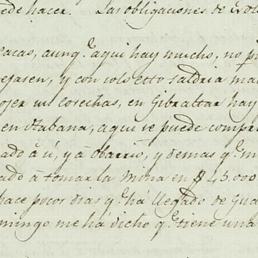 ede hacer. Las obligaciones de
acas, aunq.e aqui hay mucho, no p
ejaren, y con solo esto saldria ma
ojer sus cosechas, en Gibraltar hay
en Habana, aqui se puede compr
ado à ti, y à Obarrio, y demas q.e m
ado à tomar la Mina en $45.000
hace pocos dias y.e ha llegado de Gua
mingo me há dicho q.e tiene una